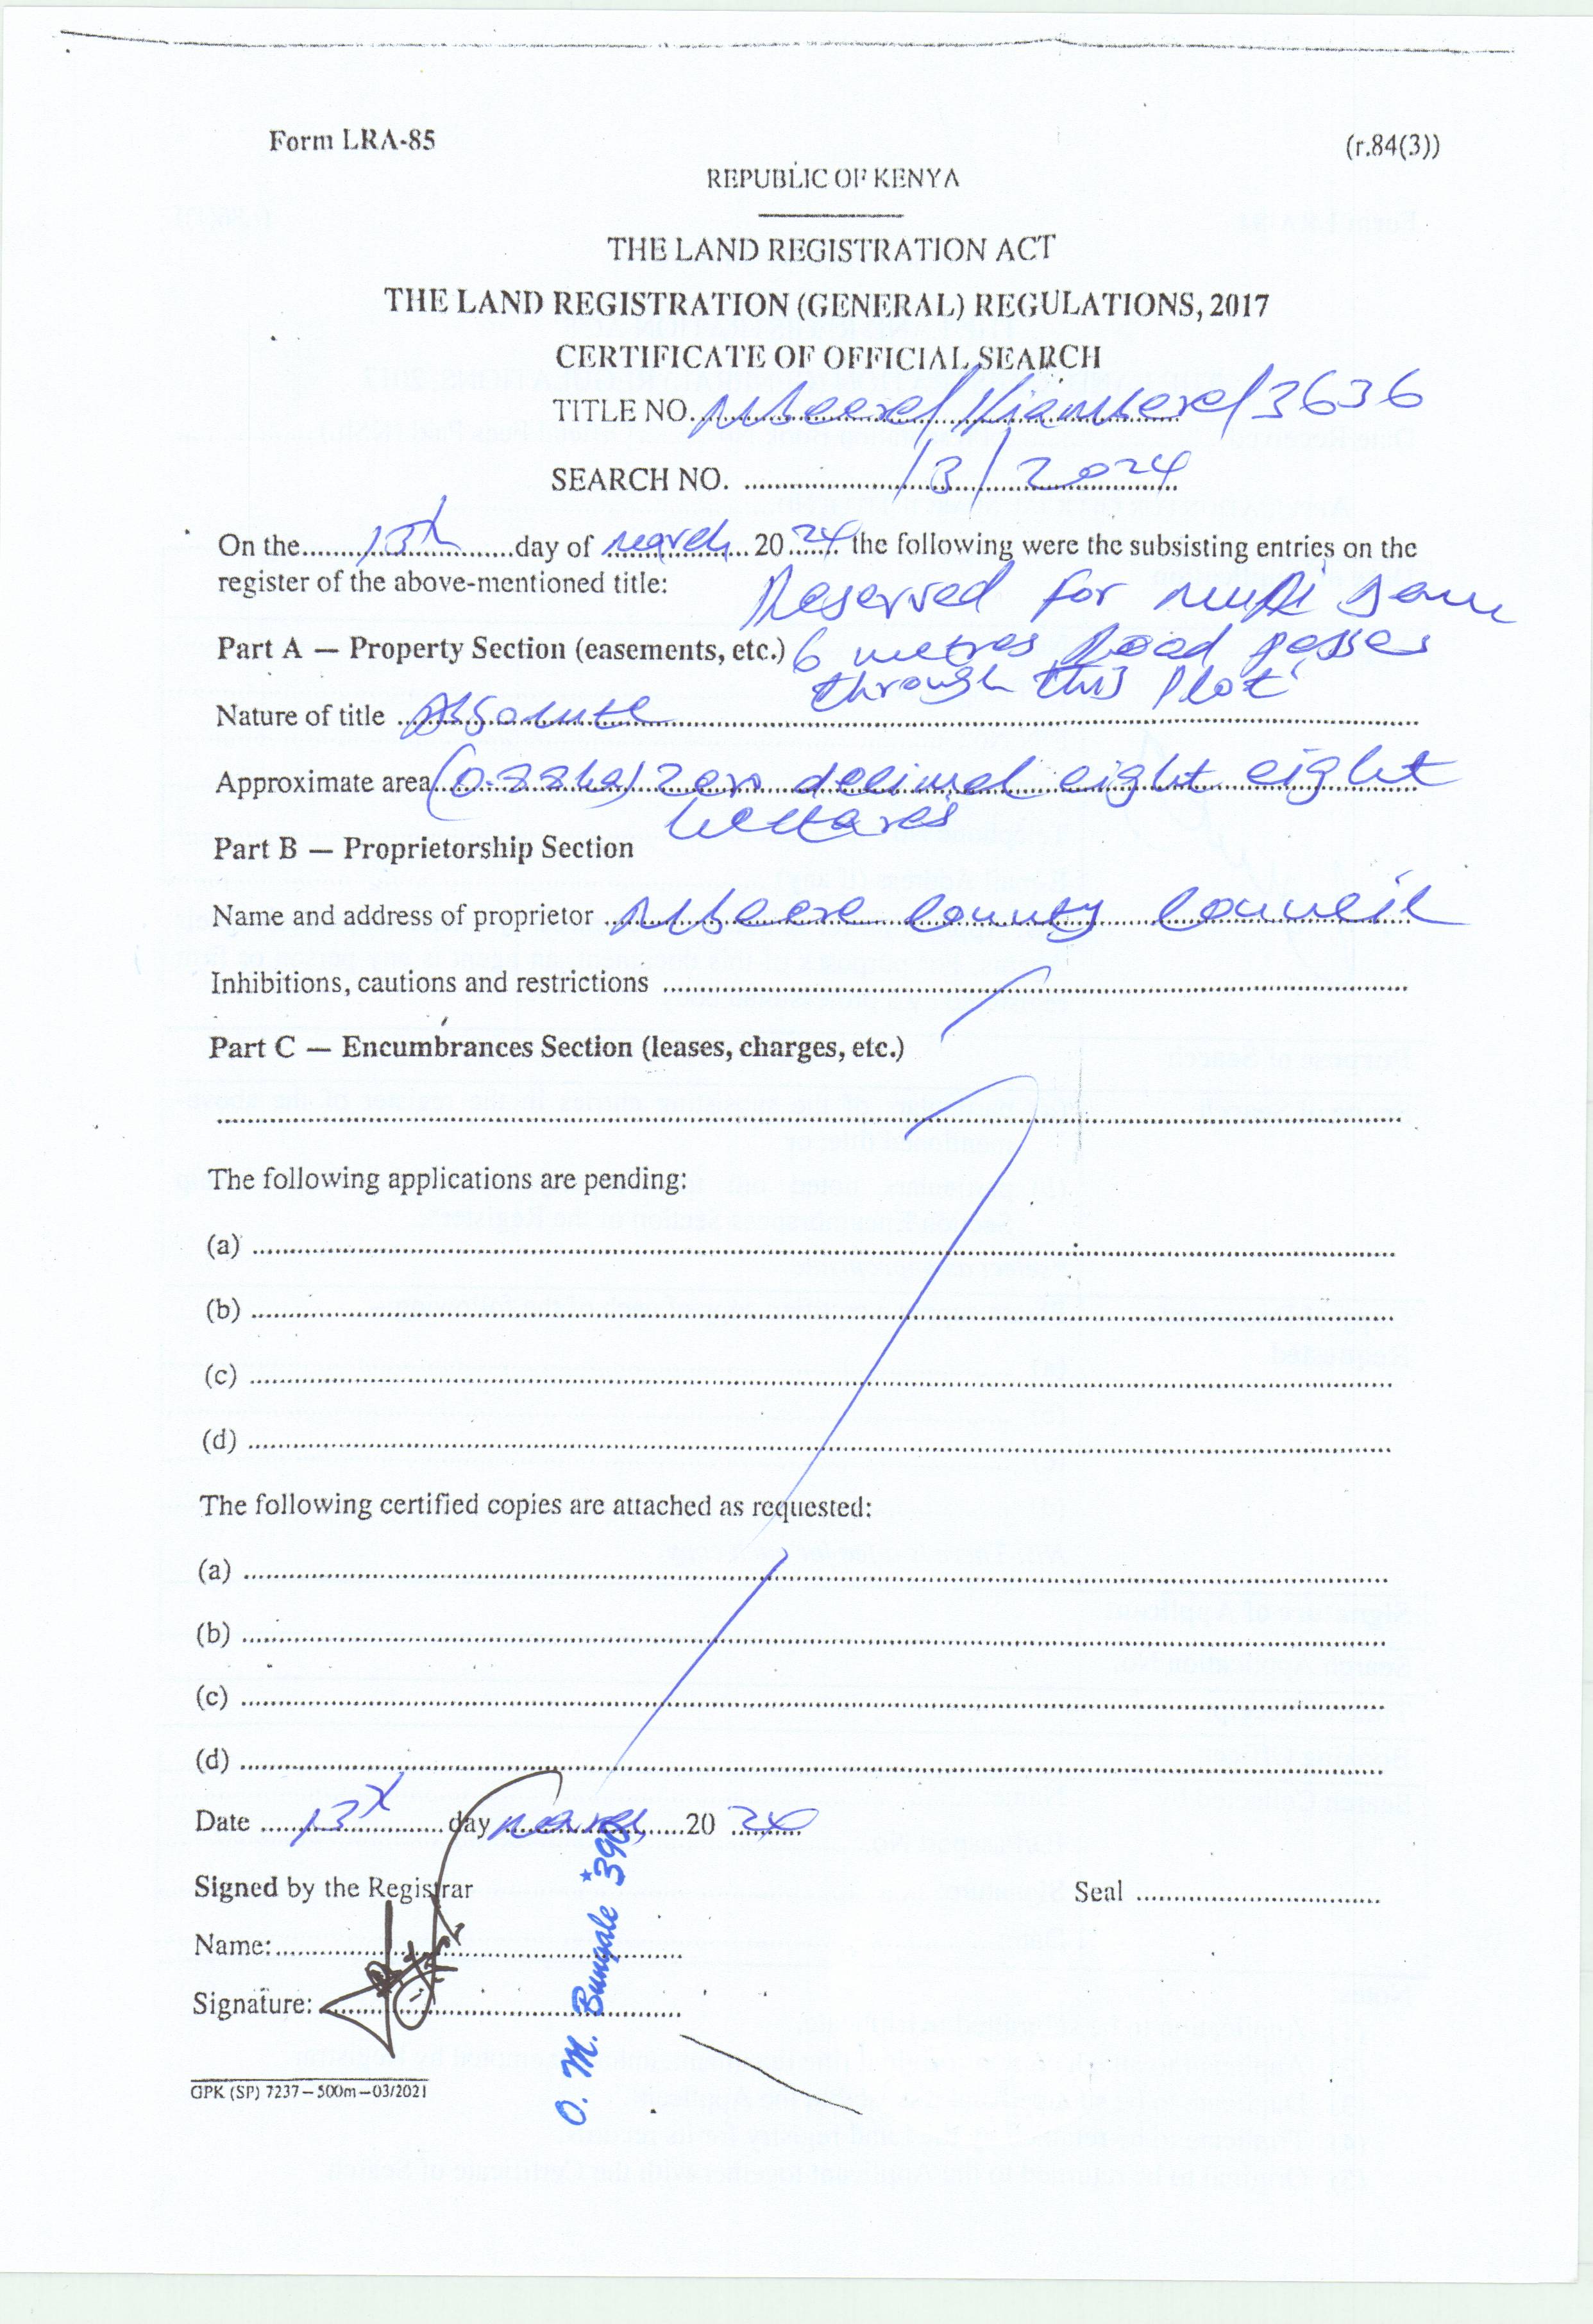 Form LRA-85 (r.84(3))
REPUBLIC OF KENYA
THE LAND REGISTRATION ACT
THE LAND REGISTRATION (GENERAL) REGULATIONS, 2017
CERTIFICATE OF OFFICIAL SEARCH
TITLE NO. Mbeere/Kiambere/3636
SEARCH NO. ........ /3/2024
On the 13th day of March 2024 the following were the subsisting entries on the
register of the above-mentioned title:
Reserved for
Part A — Property Section (easements, etc.) 6 metres Road passes
through this plot
Nature of title Absolute
Approximate area (0.88ha) zero decimal eight eight
hectares
Part B — Proprietorship Section
Name and address of proprietor Mbeere County Council
Inhibitions, cautions and restrictions ........
Part C — Encumbrances Section (leases, charges, etc.)
The following applications are pending:
(a) ........
(b) ........
(c) ........
(d) ........
The following certified copies are attached as requested:
(a) ........
(b) ........
(c) ........
(d) ........
Date 13th day March 2024
Signed by the Registrar Seal ........
Name: ........
Signature: ........
O. M. Bungale *390
GPK (SP) 7237–500m–03/2021